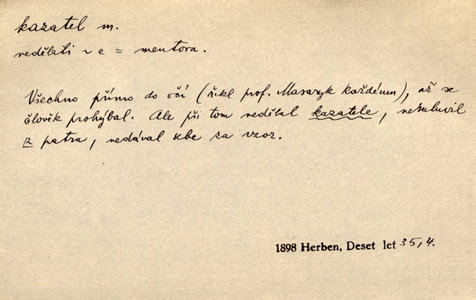 kazatel m.
nedělati ~ e = mentora.
Všechno přímo do očí (řekl prof. Masaryk každému), až se
člověk prohýbal. Ale při tom nedělal kazatele, nemluvil
z patra, nedával sebe za vzor.
1898 Herben, Deset let 35,4.